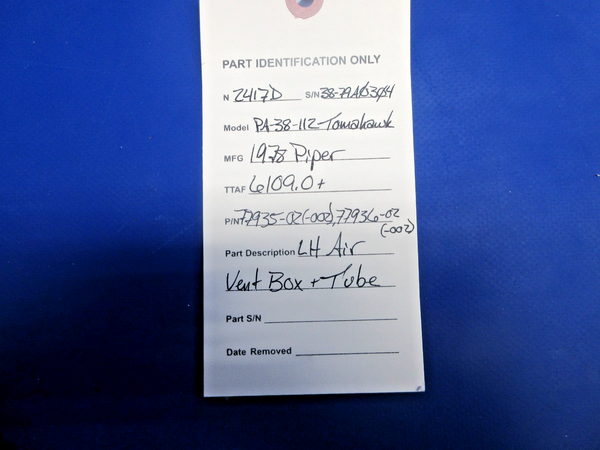 PART IDENTIFICATION ONLY
N 2417D S/N 38-79A0304
Model PA-38-112 Tomahawk
MFG 1978 Piper
TTAF 6109.0+
P/N 77935-02(-002), 77936-02
(-002)
Part Description LH Air
Vent Box + Tube
Part S/N
Date Removed